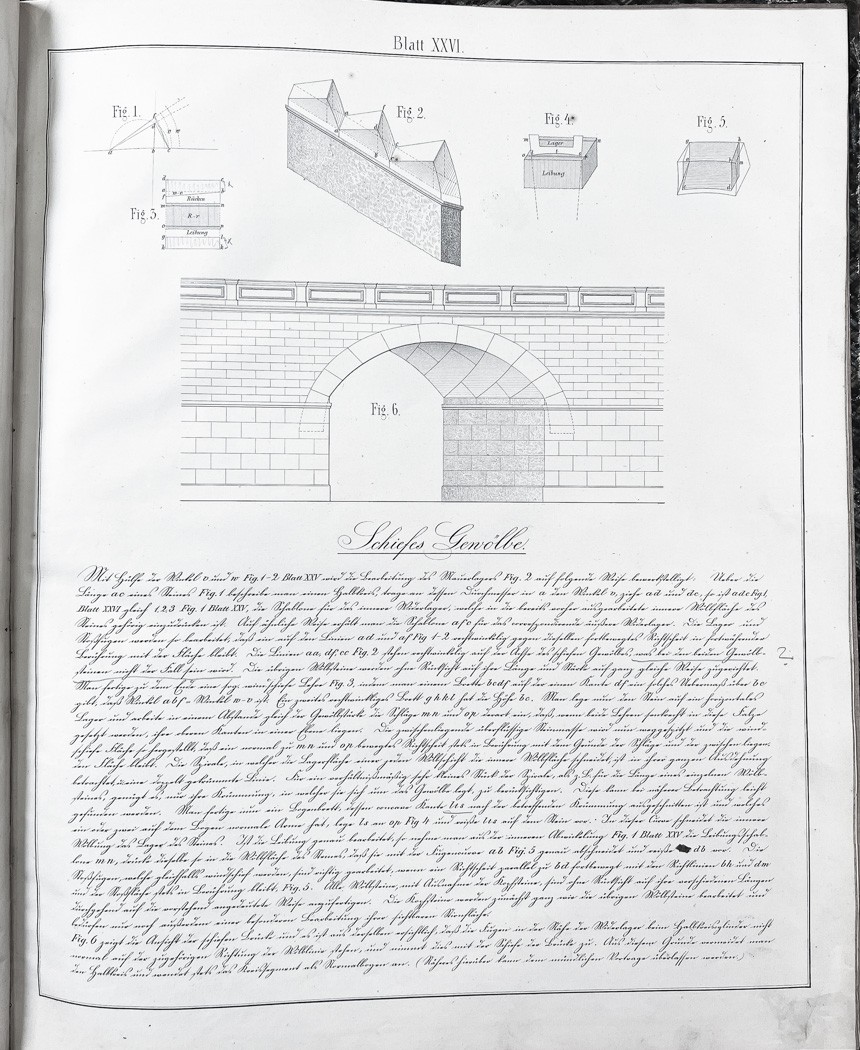 Blatt XXVI.
Fig. 1.
Fig. 2.
Fig. 3.
Fig. 4.
Fig. 5.
Lager
Leibung
Rücken
R-r
Leibung
Fig. 6.
Schiefes Gewölbe.
Mit Hülfe der Winkel v und w Fig. 1-2 Blatt XXV wird die Bearbeitung des Mauerlagers Fig. 2 auf folgende Weise bewerkstelligt: Ueber die
Länge ac eines Steines Fig. 1 beschreibe man einen Halbkreis, trage an dessen Durchmesser in a den Winkel v, ziehe ad und dc, so ist adc Fig. 1,
Blatt XXVI gleich 1,2,3 Fig. 1 Blatt XXV, die Schablone für das innere Widerlager, welche in die bereits vorher ausgearbeitete innere Wölbfläche des
Steines gehörig einzudrücken ist. Auf ähnliche Weise erhält man die Schablone afc für das correspondirende äußere Widerlager. Die Lager und
Stoßfugen werden so bearbeitet, daß ein auf den Linien ad und af Fig. 1-2 rechtwinklig gegen dieselben fortbewegtes Richtscheit in fortwährender
Berührung mit der Fläche bleibt. Die Linien aa, df, cc Fig. 2 stehen rechtwinklig auf der Achse des schiefen Gewölbes, was bei den beiden Gewölb-
steinen nicht der Fall sein wird. Die übrigen Wölbsteine werden ohne Rücksicht auf ihre Länge und Stärke auf ganz gleiche Weise zugerichtet.
?
Man fertige zu dem Ende eine sog. windschiefe Lehre Fig. 3, indem man einem Brette bcdf auf der einen Kante df ein solches Uebermaß über bc
gibt, daß Winkel abf = Winkel w-v ist. Ein zweites rechtwinkliges Brett ghkl hat die Höhe bc. Man lege nun den Stein auf ein horizontales
Lager und arbeite in einem Abstande gleich der Gewölbstärke die Schläge mn und op derart ein, daß, wenn beide Lehren senkrecht in diese Falze
gesetzt werden, ihre oberen Kanten in einer Ebene liegen. Die zwischenliegende überflüssige Steinmasse wird nun weggespitzt und die wind-
schiefe Fläche so hergestellt, daß ein normal zu mn und op bewegtes Richtscheit stets in Berührung mit dem Grunde der Schläge und der zwischen liegen-
den Fläche bleibt. Die Spirale, in welcher die Lagerfläche einer jeden Wölbschicht die innere Wölbfläche schneidet, ist in ihrer ganzen Ausdehnung
betrachtet, eine doppelt gekrümmte Linie. Für ein verhältnißmäßig sehr kleines Stück der Spirale, als z.B. für die Länge eines einzelnen Wölb-
steines, genügt es, nur ihre Krümmung, in welcher sie sich um das Gewölbe legt, zu berücksichtigen. Diese kann bei näherer Betrachtung leicht
gefunden werden. Man fertige nun ein Bogenbrett, dessen convexe Kante lts nach der betreffenden Krümmung ausgeschnitten ist und welches
ein oder zwei auf dem Bogen normale Arme hat, lege ls an op Fig. 4 und reiße lts auf dem Stein vor: In dieser Curve schneidet die innere
Wölbung das Lager des Steines. Ist die Leibung genau bearbeitet, so nehme man aus der inneren Abwicklung Fig. 1 Blatt XXV die Leibungsschab-
lone mn, drücke dieselbe so in die Wölbfläche des Steines, daß sie mit der Fugenlinie ab Fig. 5 genau abschneidet und reiße db vor. Die
Stoßfugen, welche gleichfalls windschief werden, sind richtig gearbeitet, wenn ein Richtscheit parallel zu bd fortbewegt mit den Richtlinien bh und dm
und der Stoßfläche stets in Berührung bleibt, Fig. 5. Alle Wölbsteine, mit Ausnahme der Kopfsteine, sind ohne Rücksicht auf ihre verschiedenen Längen
durchgehend auf die vorstehend angedeutete Weise anzufertigen. Die Kopfsteine werden zunächst ganz wie die übrigen Wölbsteine bearbeitet und
bedürfen nur noch außerdem einer besonderen Bearbeitung ihrer sichtbaren Stirnfläche.
Fig. 6 zeigt die Ansicht der schiefen Brücke und es ist aus derselben ersichtlich, daß die Fugen in der Nähe der Widerlager beim Halbkreiscylinder nicht
normal auf der zugehörigen Richtung der Wölblinie stehen, und nimmt dies mit der Schiefe der Brücke zu. Aus diesem Grunde vermeidet man
den Halbkreis und wendet stets das Kreissegment als Normalbogen an. (Näheres hierüber kann dem mündlichen Vortrage überlassen werden.)